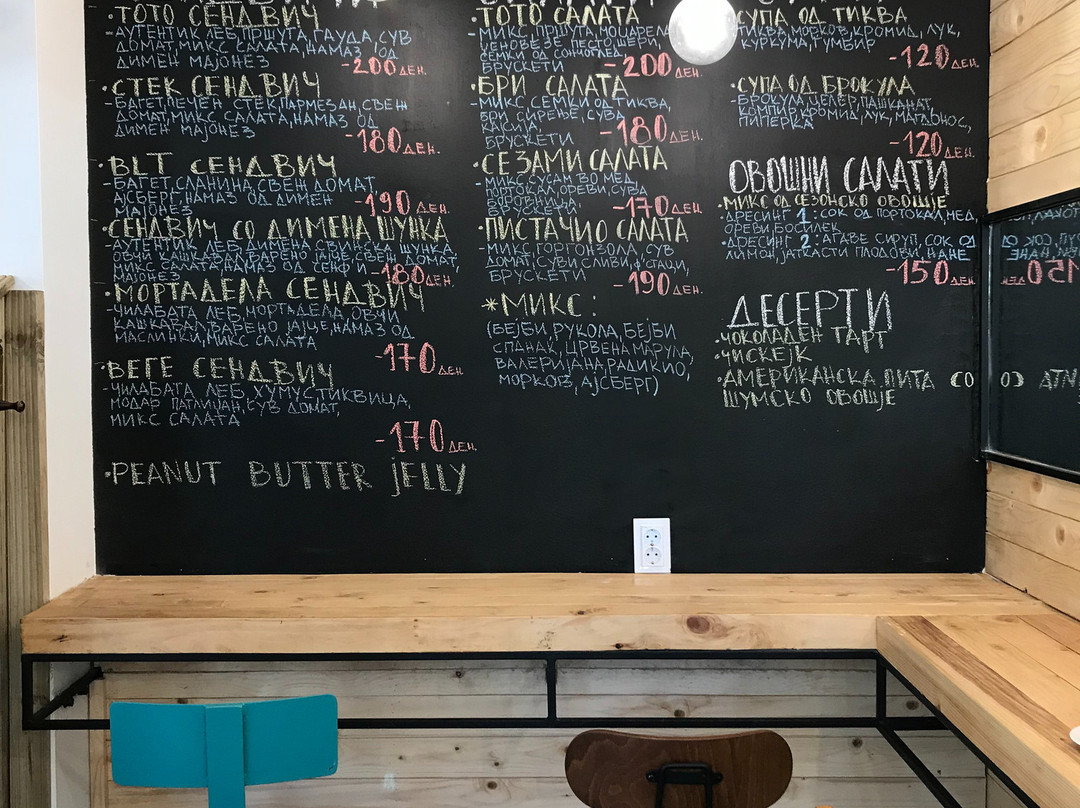 ТОТО СЕНДВИЧ
-АУТЕНТИК ЛЕБ, ПРШУТА, ГАУДА, СУВ
ДОМАТ, МИКС САЛАТА, НАМАЗ ОД
ДИМЕН МАЈОНЕЗ
-200 ДЕН.
·СТЕК СЕНДВИЧ
-БАГЕТ, ПЕЧЕН СТЕК, ПАРМЕЗАН, СВЕЖ
ДОМАТ, МИКС САЛАТА, НАМАЗ ОД
ДИМЕН МАЈОНЕЗ
-180 ДЕН.
·BLT СЕНДВИЧ
-БАГЕТ, СЛАНИНА, СВЕЖ ДОМАТ,
АЈСБЕРГ, НАМАЗ ОД ДИМЕН
МАЈОНЕЗ
-190 ДЕН.
·СЕНДВИЧ СО ДИМЕНА ШУНКА
-АУТЕНТИК ЛЕБ, ДИМЕНА СВИНСКА ШУНКА,
ОВЧИ КАШКАВАЛ, ВАРЕНО ЈАЈЦЕ, СВЕЖ ДОМАТ,
МИКС САЛАТА, НАМАЗ ОД СЕНФ И
МАЈОНЕЗ
-180 ДЕН.
·МОРТАДЕЛА СЕНДВИЧ
-ЧИЛАБАТА ЛЕБ, МОРТАДЕЛА, ОВЧИ
КАШКАВАЛ, ВАРЕНО ЈАЈЦЕ, НАМАЗ ОД
МАСЛИНКИ, МИКС САЛАТА
-170 ДЕН.
·ВЕГЕ СЕНДВИЧ
-ЧИЛАБАТА ЛЕБ, ХУМУС, ТИКВИЦА,
МОДАР ПАТЛИЏАН, СУВ ДОМАТ,
МИКС САЛАТА
-170 ДЕН.
·PEANUT BUTTER JELLY
·ТОТО САЛАТА
-МИКС, ПРШУТА, МОЦАРЕЛА,
ЏЕНОВЕЗЕ ПЕСТО, ШЕРИ,
СЕМКИ ОД СОНЧОГЛЕД
БРУСКЕТИ
-200 ДЕН.
·БРИ САЛАТА
-МИКС, СЕМКИ ОД ТИКВА,
БРИ СИРЕЊЕ, СУВА
КАЈСИЈА,
БРУСКЕТИ
-180 ДЕН.
·СЕЗАМИ САЛАТА
-МИКС, СУСАМ ВО МЕД,
ПОРТОКАЛ, ОРЕВИ, СУВА
БОРОВНИЦА,
БРУСКЕТИ
-170 ДЕН.
·ПИСТАЧИО САЛАТА
-МИКС, ГОРГОНЗОЛА, СУВ
ДОМАТ, СУВИ СЛИВИ, Ф'СТАЦИ,
БРУСКЕТИ
-190 ДЕН.
*МИКС:
(БЕЈБИ РУКОЛА, БЕЈБИ
СПАНАЌ, ЦРВЕНА МАРУЛА,
ВАЛЕРИЈАНА, РАДИКИО,
МОРКОВ, АЈСБЕРГ)
·СУПА ОД ТИКВА
-ТИКВА, МОРКОВ, КРОМИД, ЛУК,
КУРКУМА, ЃУМБИР
-120 ДЕН.
·СУПА ОД БРОКУЛА
-БРОКУЛА, ЦЕЛЕР, ПАШКАНАТ,
КОМПИР, КРОМИД, ЛУК, МАГДОНОС,
ПИПЕРКА
-120 ДЕН.
ОВОШНИ САЛАТИ
·МИКС ОД СЕЗОНСКО ОВОШЈЕ
·ДРЕСИНГ 1: СОК ОД ПОРТОКАЛ, МЕД,
ОРЕВИ, БОСИЛЕК
·ДРЕСИНГ 2: АГАВЕ СИРУП, СОК ОД
ЛИМОН, ЈАТКАСТИ ПЛОДОВИ, НАНЕ
-150 ДЕН.
ДЕСЕРТИ
·ЧОКОЛАДЕН ТАРТ
·ЧИЗКЕЈК
·АМЕРИКАНСКА ПИТА СО
ШУМСКО ОВОШЈЕ